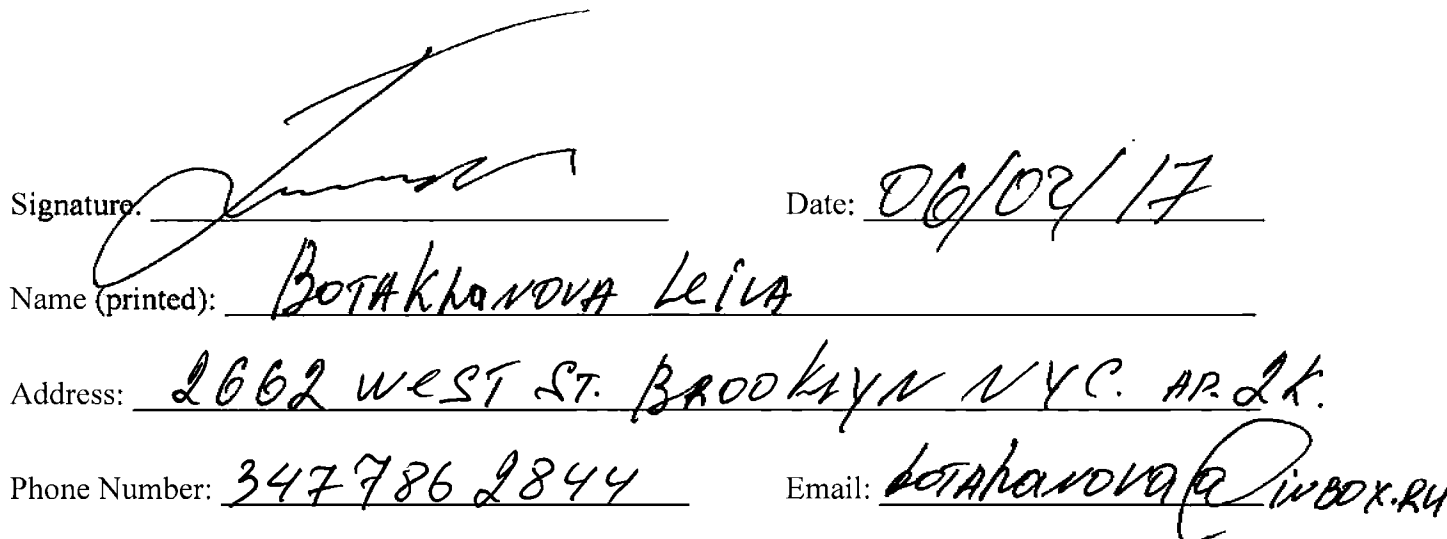 Signature: Date: 06/02/17
Name (printed): BOTAKhaNOVA LeiLA
Address: 2662 WeST ST. BROOKLYN NYC. AP. 2K.
Phone Number: 347 786 2844 Email: botahanova@inbox.ru